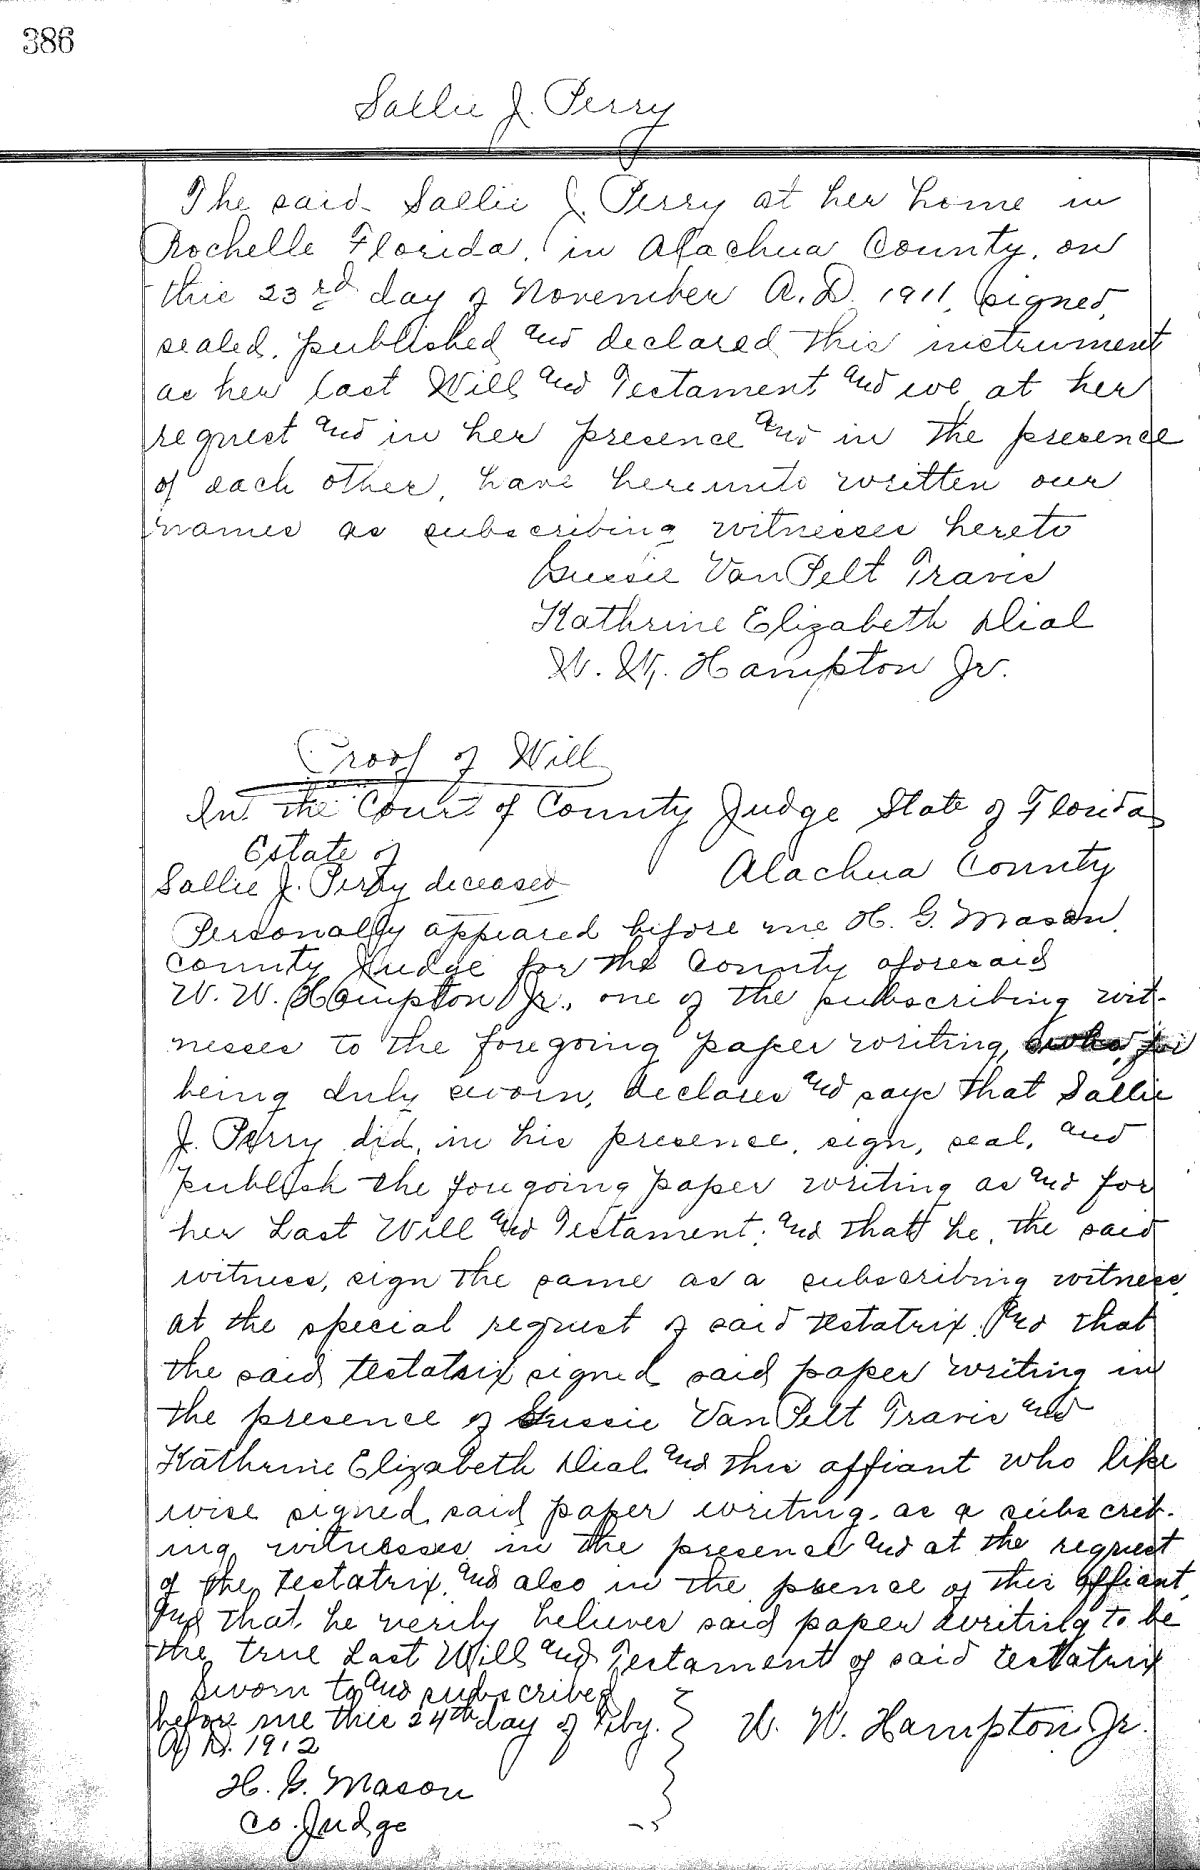 386
Sallie J. Perry
The said Sallie J. Perry at her home in
Rochelle Florida, in Alachua County, on
this 23rd day of November A.D. 1911, signed,
sealed, published and declared this instrument
as her last Will and Testament and we at her
request and in her presence and in the presence
of each other, have hereunto written our
names as subscribing witnesses hereto
Gussie VanPelt Travis
Kathrine Elizabeth Dial
W. W. Hampton Jr.
Proof of Will
In the Court of County Judge State of Florida
Estate of
Sallie J. Perry deceased Alachua County
Personally appeared before me H. G. Mason,
County Judge for the County aforesaid
W. W. Hampton Jr., one of the subscribing wit-
nesses to the foregoing paper writing, who,
being duly sworn, declares and says that Sallie
J. Perry did, in his presence, sign, seal, and
publish the foregoing paper writing as and for
her Last Will and Testament; and that he, the said
witness, sign the same as a subscribing witness,
at the special request of said testatrix. And that
the said testatrix signed said paper writing in
the presence of Gussie VanPelt Travis and
Kathrine Elizabeth Dial and this affiant who like
wise signed said paper writing as a subscrib-
ing witnesses in the presence and at the request
of the testatrix, and also in the presence of this affiant,
And that he verily believes said paper writing to be
the true Last Will and Testament of said testatrix
Sworn to and subscribed
before me this 24th day of Feby.
A. D. 1912
W. W. Hampton Jr.
H. G. Mason
Co. Judge